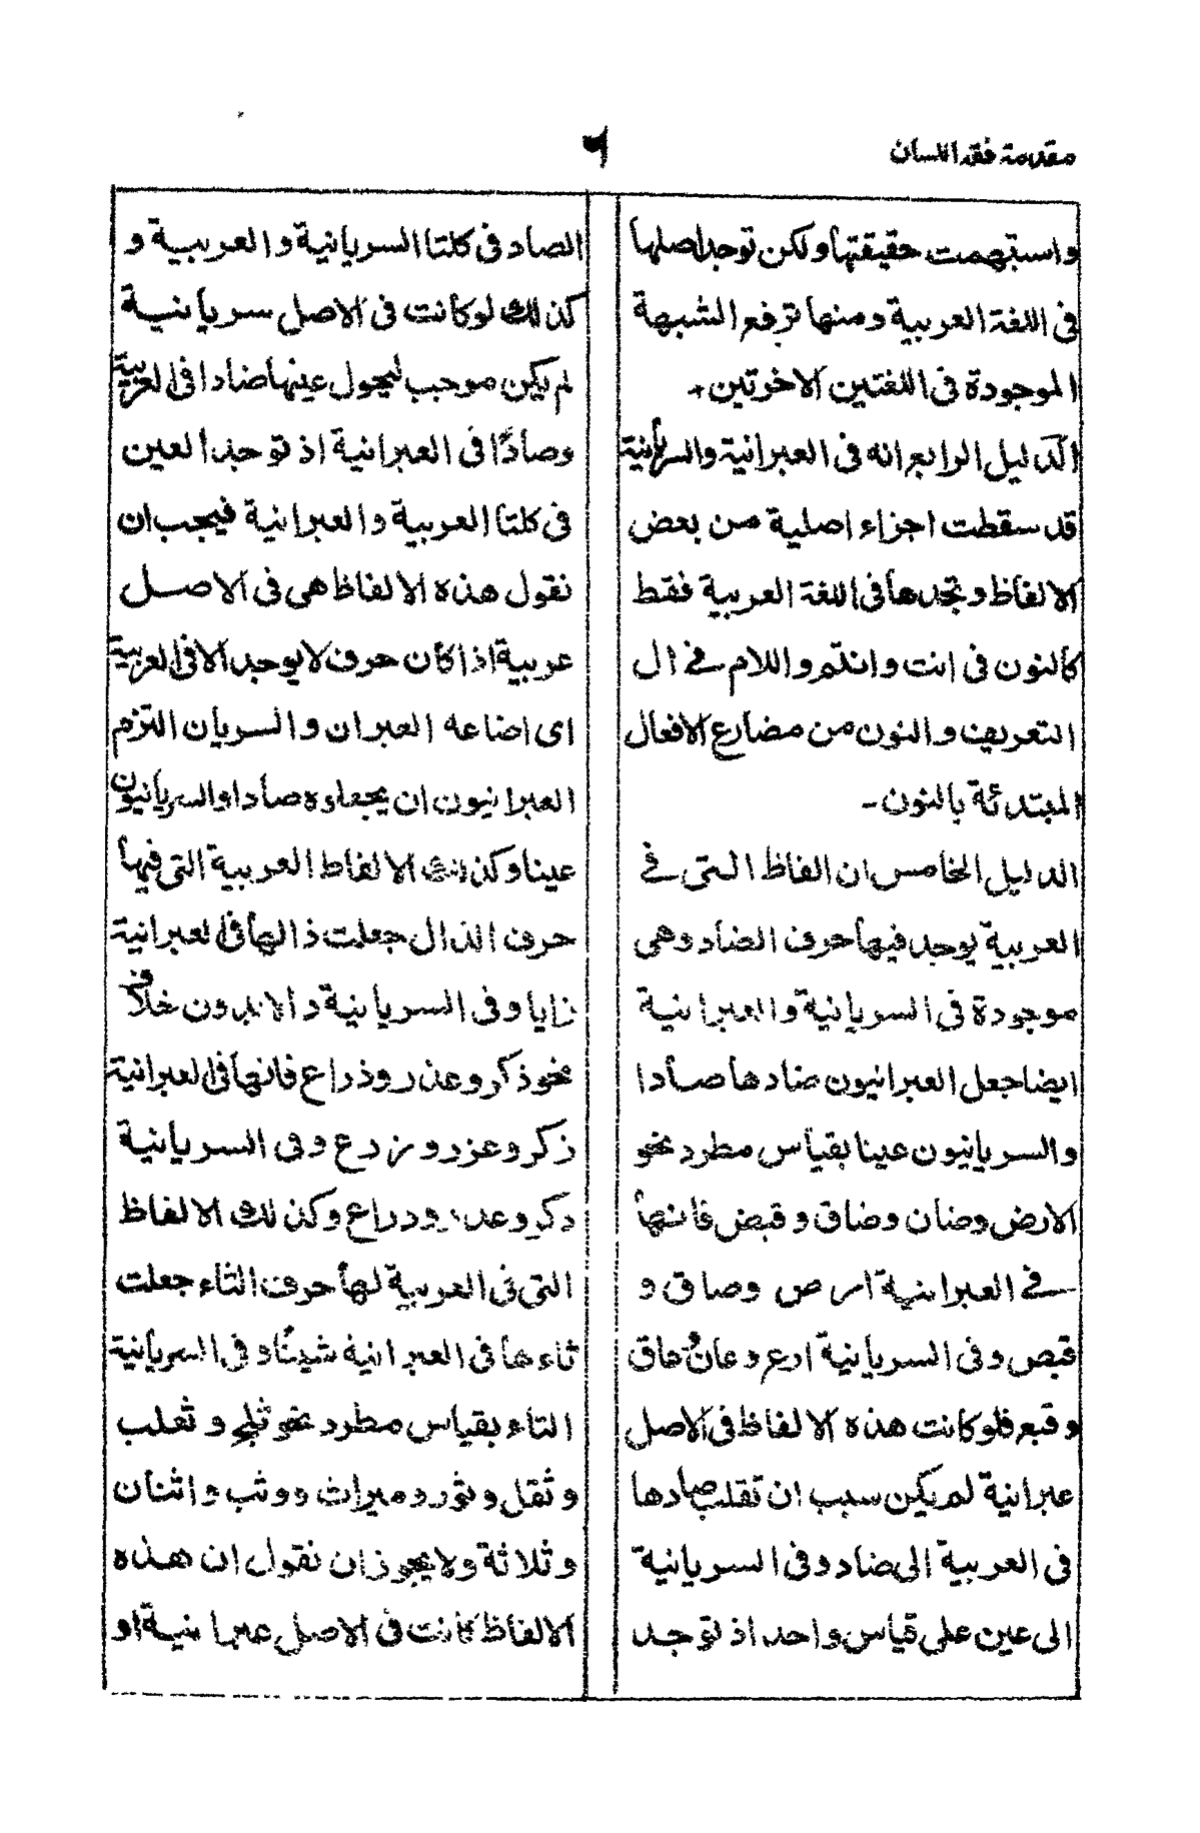 مقدمة فقه اللسان
٦
واستبهمت حقيقتها ولكن توجد اصلها
فى اللغة العربية ومنها ترفع الشبهة
الموجودة فى اللغتين الاخرتين
الدليل الرابع انه فى العبرانية والسريانية
قد سقطت اجزاء اصلية من بعض
الالفاظ وتجدها فى اللغة العربية فقط
كالنون فى انت وانتم واللام فى ال
التعريف والنون من مضارع الافعال
المبتدئة بالنون -
الدليل الخامس ان الفاظ التى فى
العربية يوجد فيها حرف الضاد وهى
موجودة فى السريانية والعبرانية
ايضا جعل العبرانيون ضادها صادا
والسريانيون عينا بقياس مطرد نحو
الارض وضان وضاق وقبض فانها
فى العبرانية ارص وصاق و
قبص وفى السريانية ارع وعان وعاق
وقبع فلو كانت هذه الالفاظ فى الاصل
عبرانية لم يكن سبب ان تقلب صادها
فى العربية الى ضاد وفى السريانية
الى عين على قياس واحد اذ توجد
الصاد فى كلتا السريانية والعربية و
كذلك لو كانت فى الاصل سريانية
لم يكن موجب ليحول عينها ضادا فى العربية
وصادًا فى العبرانية اذ توجد العين
فى كلتا العربية والعبرانية فيجب ان
نقول هذه الالفاظ هى فى الاصل
عربية اذا كان حرف لا يوجد الا فى العربية
اى اضاعه العبران والسريان التزم
العبرانيون ان يجعلوه صادا والسريانيون
عينا وكذلك الالفاظ العربية التى فيها
حرف الذال جعلت ذالها فى العبرانية
زايا وفى السريانية دالا بدون خلاف
نحو ذكر وعذر وذراع فانها فى العبرانية
زكر وعزر وزرع وفى السريانية
دكر وعدر ودراع وكذلك الالفاظ
التى فى العربية لها حرف الثاء جعلت
ثاءها فى العبرانية شينًا وفى السريانية
التاء بقياس مطرد نحو ثلج وثعلب
وثقل وثور وميراث ووثب واثنان
وثلاثة ولا يجوز ان نقول ان هذه
الالفاظ كانت فى الاصل عبرانية او